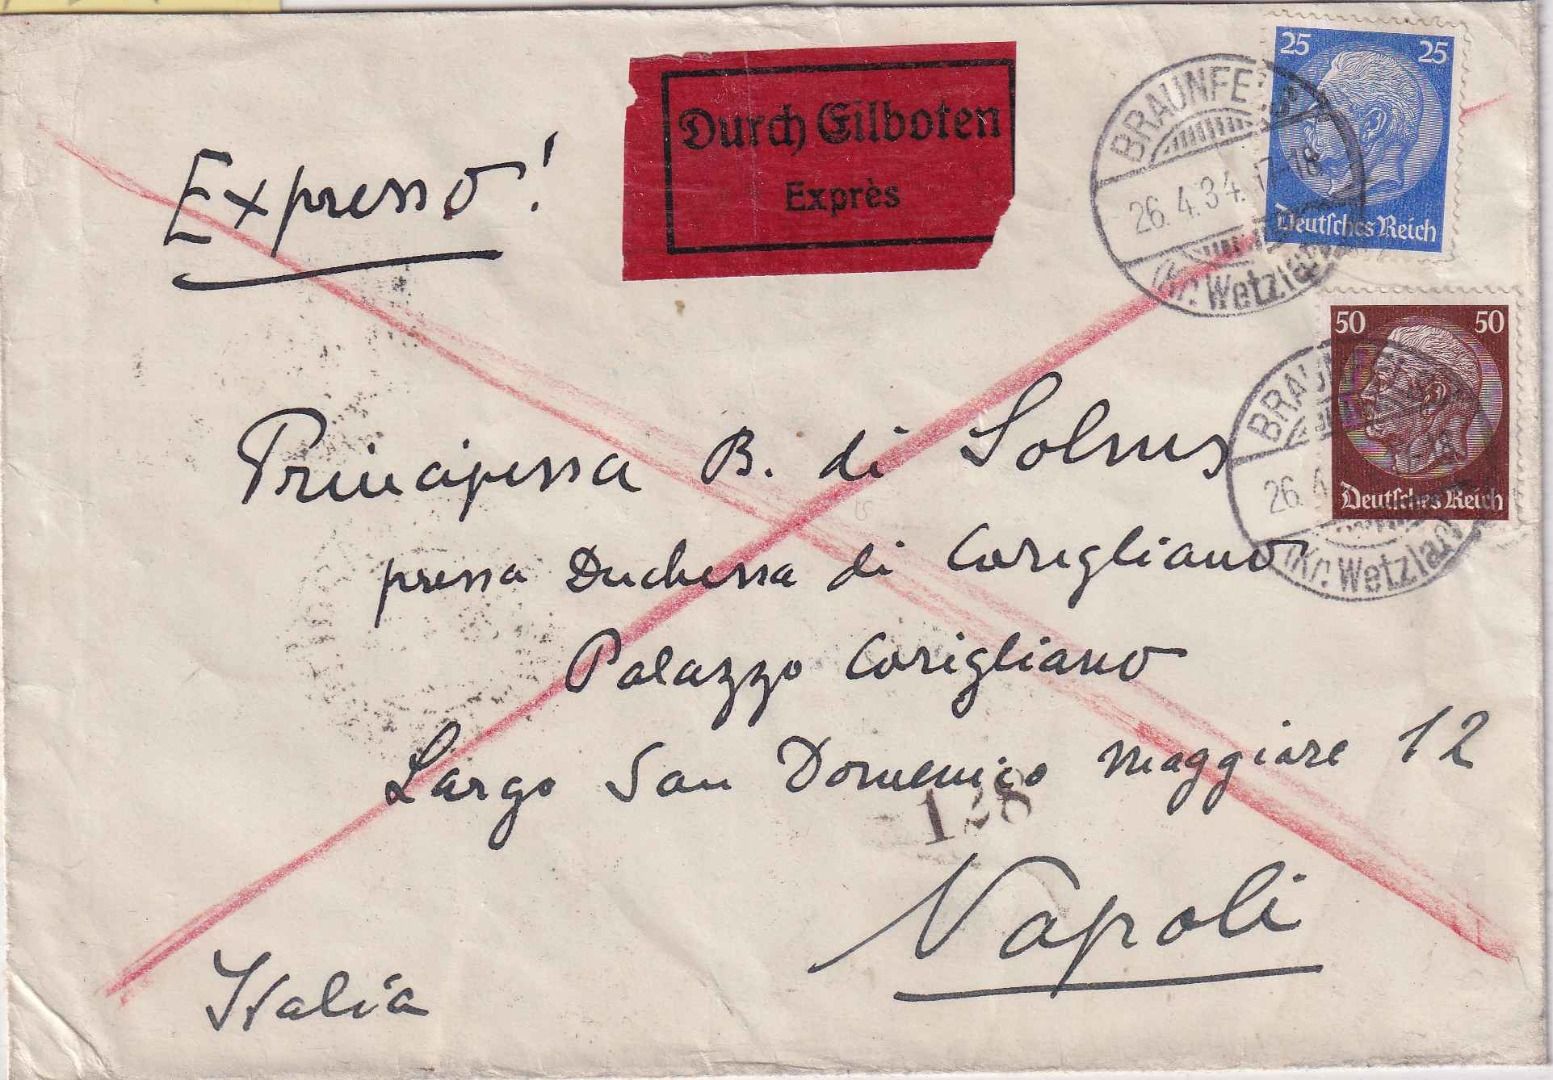 Expresso!
Durch Eilboten
Exprès
25 25
Deutsches Reich
BRAUNFELS
26.4.34. 17-18
(Kr. Wetzlar)
50 50
Deutsches Reich
BRAUNFELS
26.4
(Kr. Wetzlar)
Principessa B. di Solms
presso Duchessa di Corigliano
Palazzo Corigliano
Largo San Domenico Maggiore 12
128
Napoli
Italia